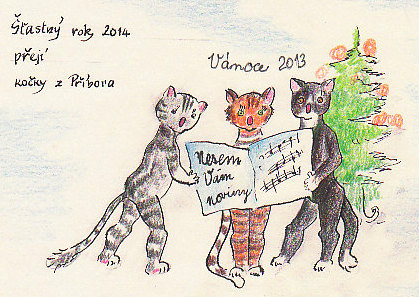 Šťastný rok 2014
přejí
kočky z Příbora
Vánoce 2013
Nesem
Vám
noviny